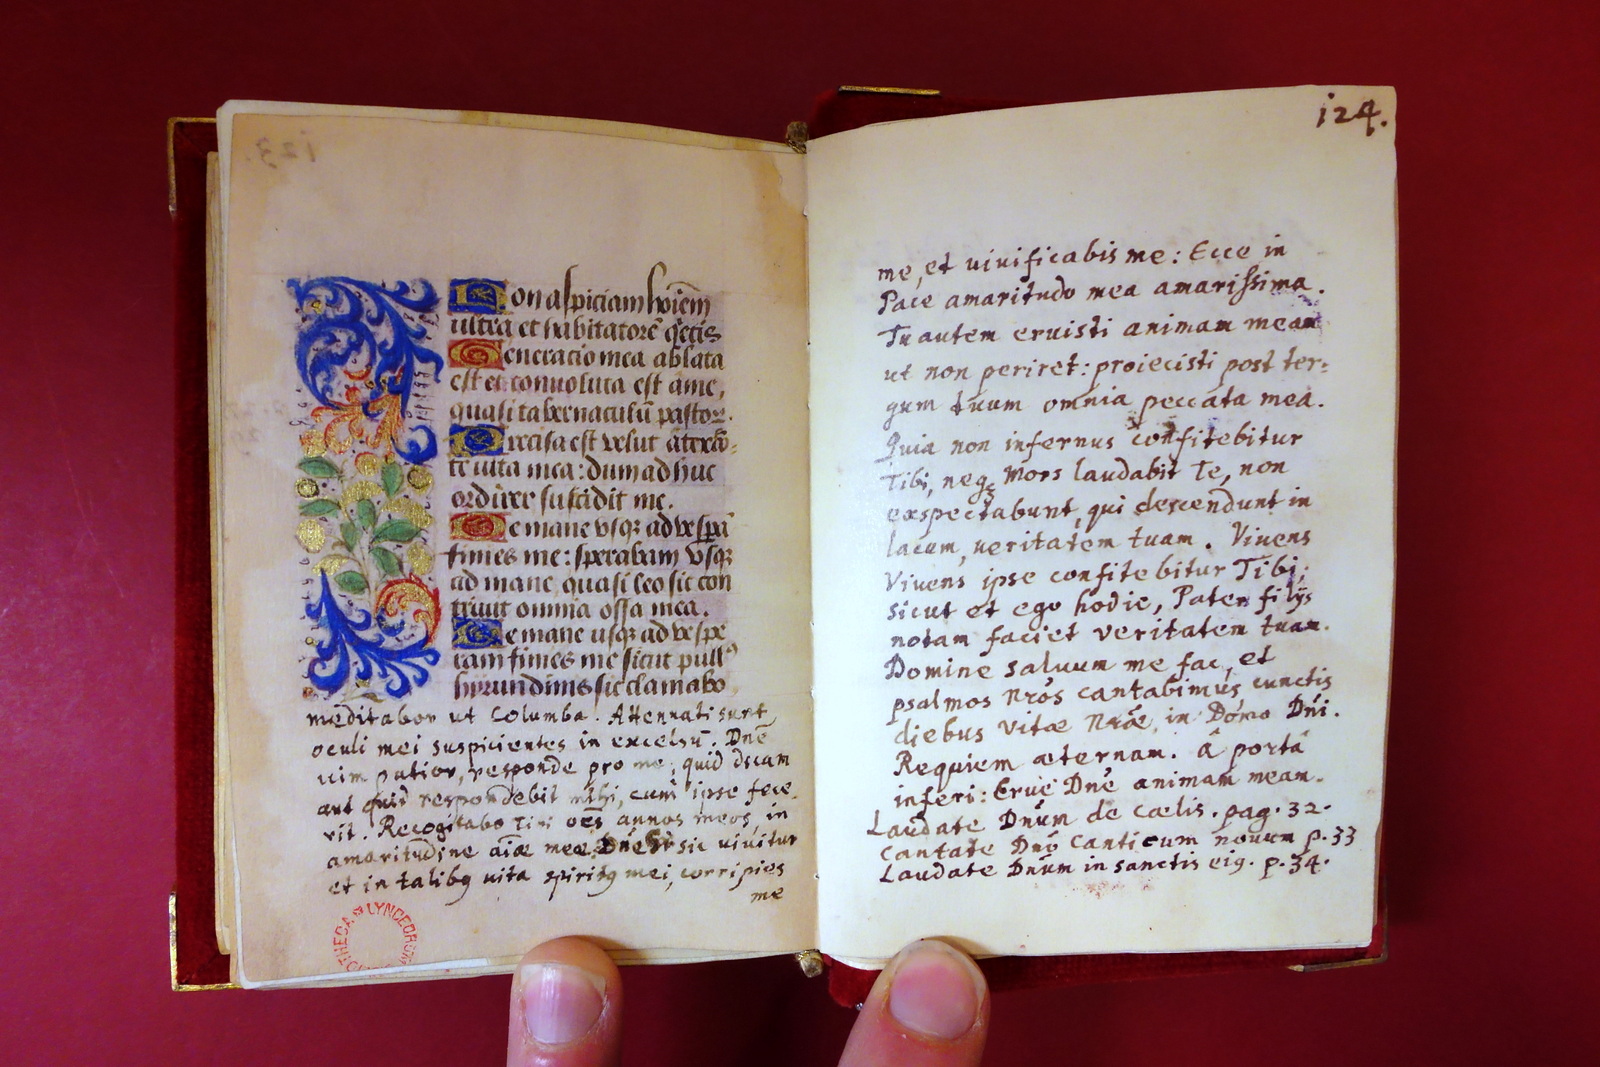 Non aspiciam hoiēm
ultra et habitatorē q̄etis
Generacio mea ablata
est et convoluta est a me,
quasi tabernaculū pastoꝝ.
Precisa est velut a texē-
te vita mea: dum ad huc
ordirer sucidit me.
De mane vsqꝫ ad vesperā
finies me: sperabam vsqꝫ
ad mane quasi leo sic con
trivit omnia ossa mea.
De mane usqꝫ ad vespe
ram finies me sicut pullꝰ
hyrundinis sic clamabo
meditabor ut Columba. Attenuati sunt
oculi mei suspicientes in excelsū. Dnē
uim patior, responde pro me; quid dicam
aut quid respondebit mihi, cum ipse fece-
rit. Recogitabo Tibi oēs annos meos, in
amaritudine aiæ meæ. Dnē si sic uiuitur
et in talibꝫ uita spiritꝫ mei, corripies
me
BIBLIOTHECA LYNCEORUM
124.
me, et uiuificabis me: Ecce in
Pace amaritudo mea amarissima.
Tu autem eruisti animam meam
ut non periret: proiecisti post ter=
gum tuum omnia peccata mea.
Quia non infernus confitebitur
Tibi, neqꝫ Mors laudabit Te, non
exspectabunt, qui descendunt in
lacum, ueritatem tuam. Viuens
Viuens ipse confitebitur Tibi,
sicut et ego hodie, Pater filijs
notam faciet veritatem tuam.
Domine saluum me fac, et
psalmos Nrós cantabimus cunctis
diebus vitæ Nræ, in Domo Dni.
Requiem æternam. â portâ
inferi: Erue Dnē animam meam.
Laudate Dnum de cælis. pag. 32.
Cantate Dnó Canticum novum p. 33
Laudate Dnum in sanctis eig. p. 34.